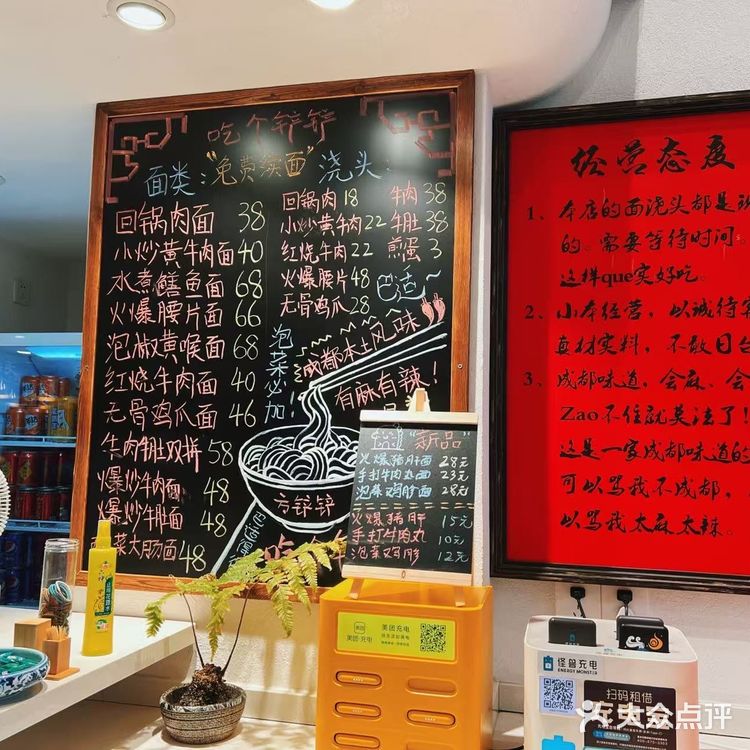 吃个铲铲
面类：“免费续面” 浇头：
回锅肉面 38
小炒黄牛肉面 40
水煮鳝鱼面 68
火爆腰片面 66
泡椒黄喉面 68
红烧牛肉面 40
无骨鸡爪面 46
牛肉牛肚双拼 58
爆炒牛肉面 48
爆炒牛肚面 48
菜大肠面 48
回锅肉 18
小炒黄牛肉 22
红烧牛肉 22
火爆腰片 48
无骨鸡爪 28
牛肉 38
牛肚 38
煎蛋 3
巴适~
泡菜必加！
成都本土风味
有麻有辣！
方铲铲
吃个
“新品”
火爆猪肝面 28元
手打牛肉丸面 23元
泡菜鸡胗面 28元
火爆猪肝 15元
手打牛肉丸 10元
泡菜鸡胗 12元
经营态度
1、本店的面浇头都是
的。需要等待时间
这样que实好吃。
2、小本经营，以诚待
真材实料，不敢日白
3、成都味道，会麻、会
Zao不住就莫法了！
这是一家成都味道的
可以骂我不成都，
以骂我太麻太辣。
美团充电
美团·充电
怪兽充电
ENERGY MONSTER
扫码租借
大众点评